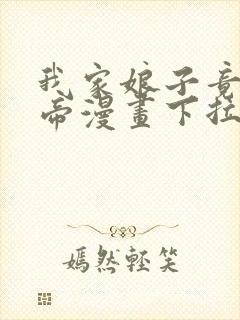 我家娘子竟
帝漫畫下拉
嫣然輕笑